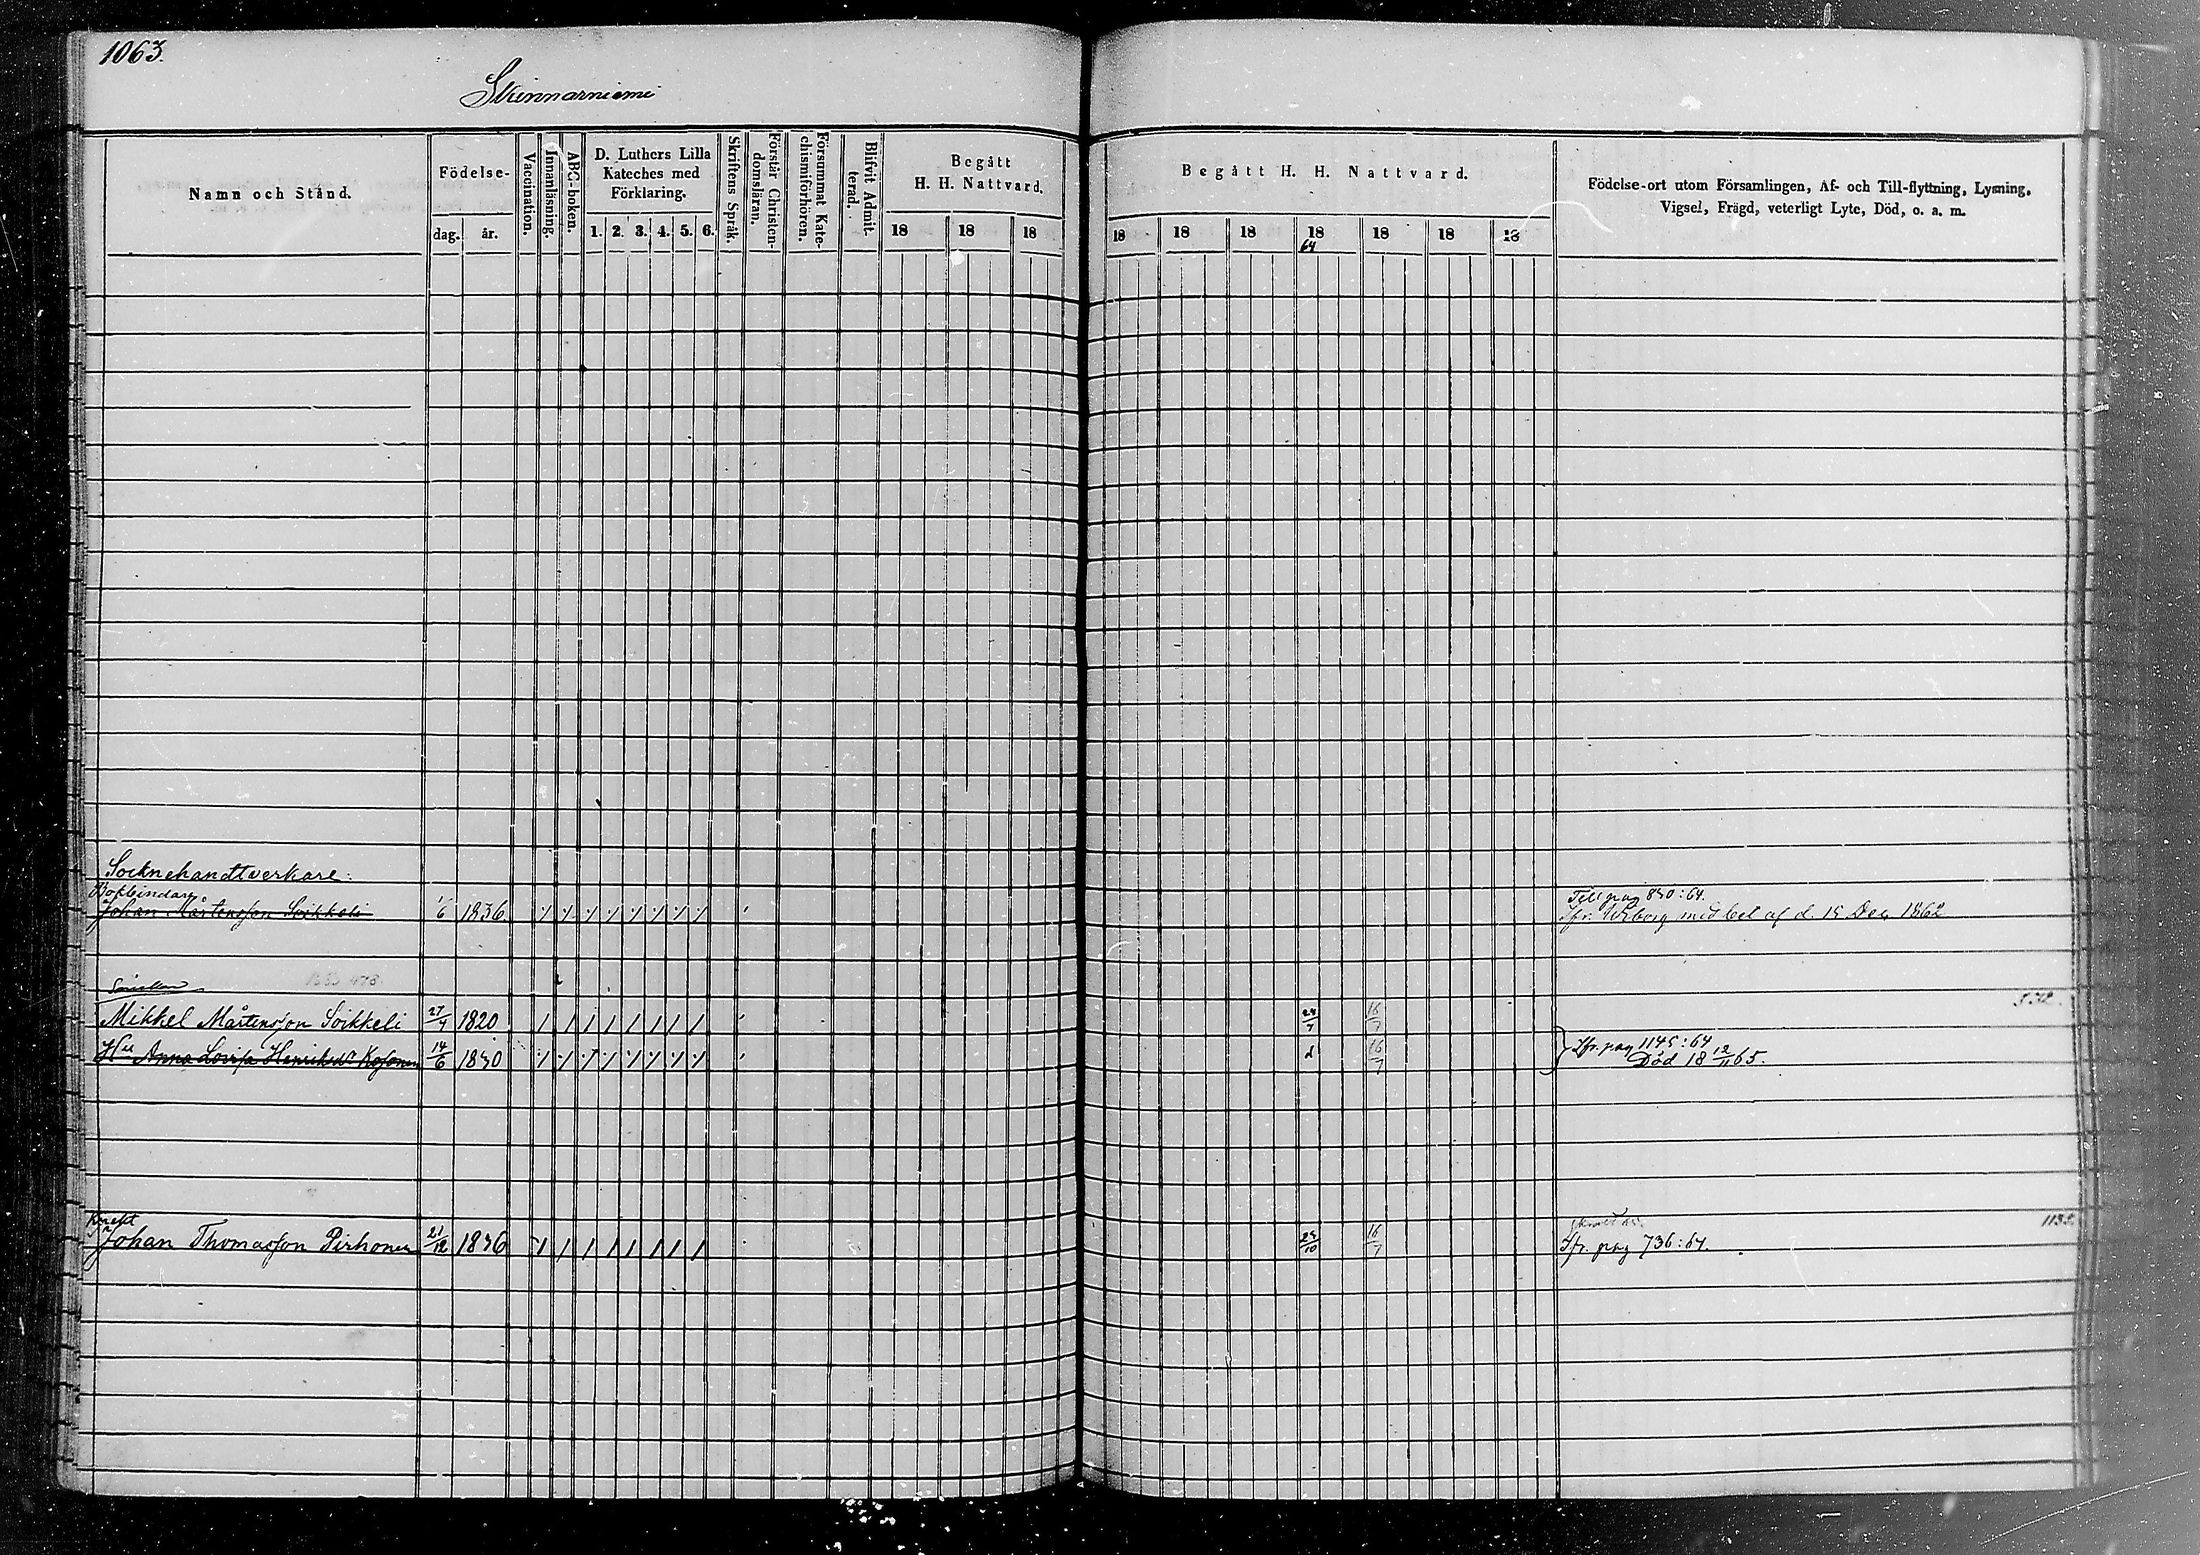 1063.
Skinnarniemi
Namn och Stånd.
Födelse-
dag. år.
Vaccination.
Innanläsning.
ABC-boken.
D. Luthers Lilla
Kateches med
Förklaring.
1. 2. 3. 4. 5. 6.
Skriftens Språk.
Förstår Christen-
domsläran.
Försummat Kate-
chismiförhören.
Blifvit Admit-
terad.
Begått
H. H. Nattvard.
18 18 18
Begått H. H. Nattvard.
18 18 18 18 18 18 18
64
Födelse-ort utom Församlingen, Af- och Till-flyttning, Lysning,
Vigsel, Frägd, veterligt Lyte, Död, o. a. m.
Socknehandtverkare:
Bokbindare
Till pag 830:64.
Johan Mårtensson Soikkeli 1/6 1836
Ifr. Wiborg med bet af d. 15 Dec. 1862
Mikkel Mårtensson Soikkeli 27/4 1820 24/7 16/7
Hu Anna Lovisa Henriksdr Kosonen 14/6 1830 16/7
Ifr. pag 1145:64
Död 18 12/11 65.
Knekt
Johan Thomasson Pirhonen 21/12 1836 16/7
Ifr. pag 736:64.